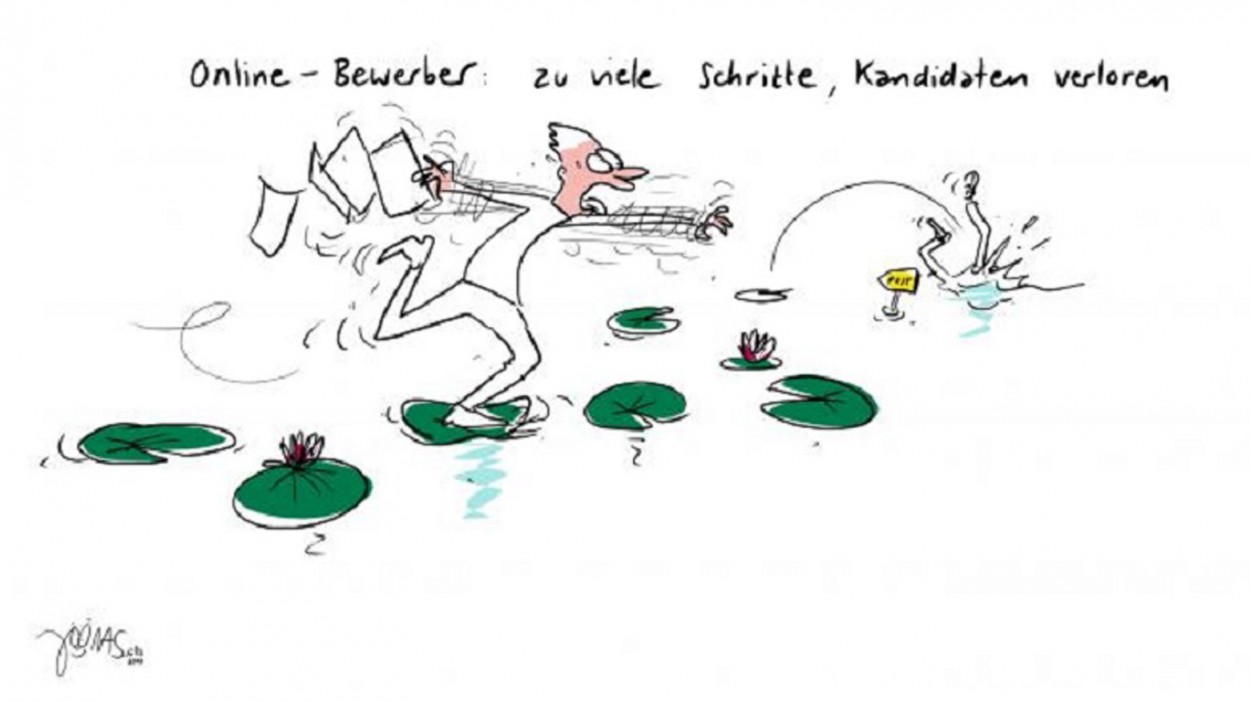 Online - Bewerber: zu viele Schritte, Kandidaten verloren